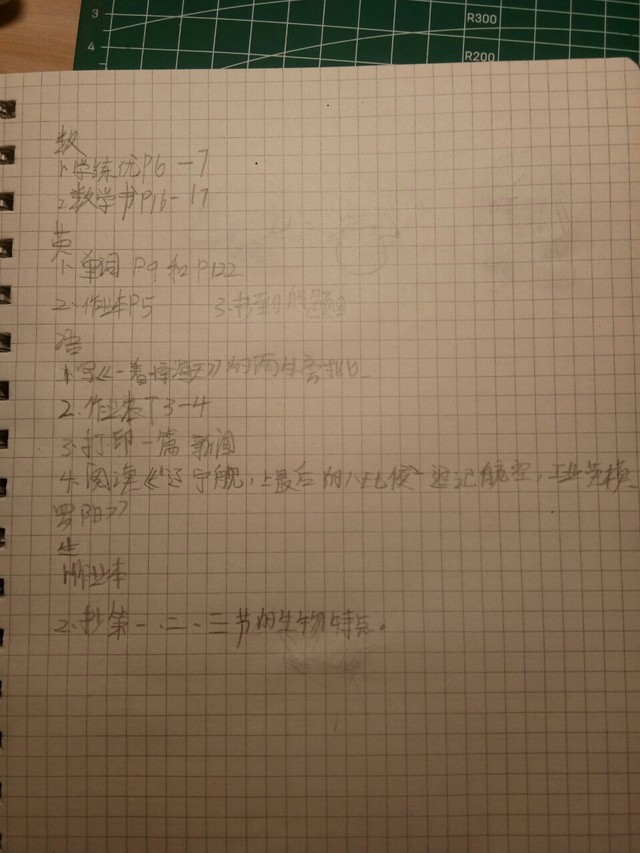 3
4
R300
R200
数
1.学练优P6-7
2.数学书P16-17
英
1.单词 P9 和 P122
2.作业本P5 3.书
语
1.写《一着惊海天》的
2.作业本T3-4
3.打印一篇新闻
4.阅读《"辽宁舰"上最后的 追记航空 英模
罗阳》
生
1.作业本
2.抄第一、二、三节的生物特点。